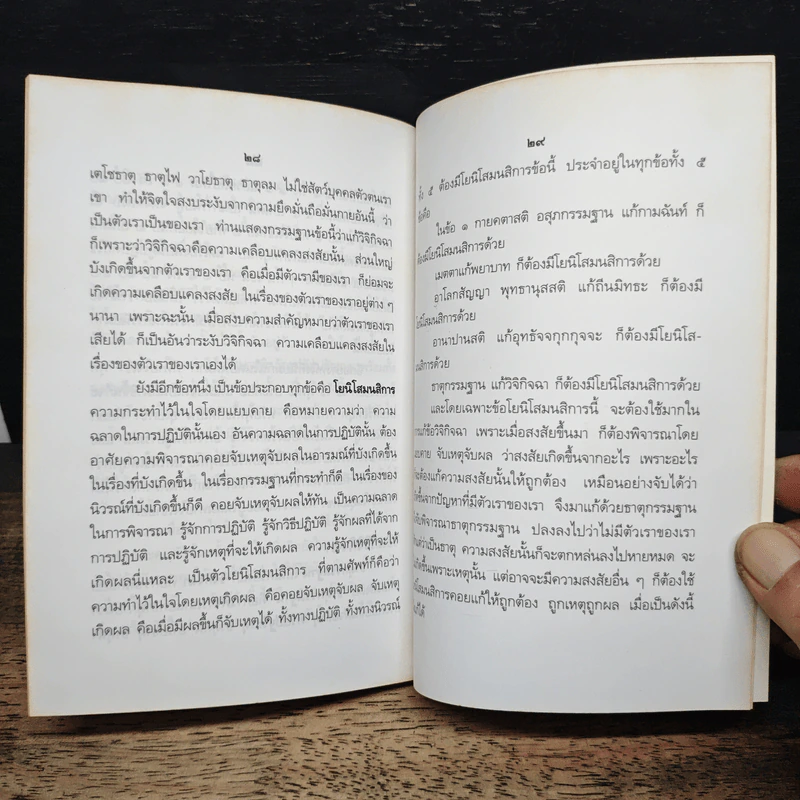 ๒๘
เตโชธาตุ ธาตุไฟ วาโยธาตุ ธาตุลม ไม่ใช่สัตว์บุคคลตัวตนเรา
เขา ทำให้จิตใจสงบระงับจากความยึดมั่นถือมั่นกายอันนี้ ว่า
เป็นตัวเราเป็นของเรา ท่านแสดงกรรมฐานข้อนี้ว่าแก้วิจิกิจฉา
ก็เพราะว่าวิจิกิจฉาคือความเคลือบแคลงสงสัยนั้น ส่วนใหญ่
บังเกิดขึ้นจากตัวเราของเรา คือเมื่อมีตัวเรามีของเรา ก็ย่อมจะ
เกิดความเคลือบแคลงสงสัย ในเรื่องของตัวเราของเราอยู่ต่าง ๆ
นานา เพราะฉะนั้น เมื่อสงบความสำคัญหมายว่าตัวเราของเรา
เสียได้ ก็เป็นอันว่าระงับวิจิกิจฉา ความเคลือบแคลงสงสัยใน
เรื่องของตัวเราของเราเองได้
ยังมีอีกข้อหนึ่ง เป็นข้อประกอบทุกข้อคือ โยนิโสมนสิการ
ความกระทำไว้ในใจโดยแยบคาย คือหมายความว่า ความ
ฉลาดในการปฏิบัตินั้นเอง อันความฉลาดในการปฏิบัตินั้น ต้อง
อาศัยความพิจารณาคอยจับเหตุจับผลในอารมณ์ที่บังเกิดขึ้น
ในเรื่องที่บังเกิดขึ้น ในเรื่องกรรมฐานที่กระทำก็ดี ในเรื่องของ
นิวรณ์ที่บังเกิดขึ้นก็ดี คอยจับเหตุจับผลให้ทัน เป็นความฉลาด
ในการพิจารณา รู้จักการปฏิบัติ รู้จักวิธีปฏิบัติ รู้จักผลที่ได้จาก
การปฏิบัติ และรู้จักเหตุที่จะให้เกิดผล ความรู้จักเหตุที่จะให้
เกิดผลนี่แหละ เป็นตัวโยนิโสมนสิการ ที่ตามศัพท์ก็คือว่า
ความทำไว้ในใจโดยเหตุเกิดผล คือคอยจับเหตุจับผล จับเหตุ
เกิดผล คือเมื่อมีผลขึ้นก็จับเหตุได้ ทั้งทางปฏิบัติ ทั้งทางนิวรณ์
๒๙
ทั้ง ๕ ต้องมีโยนิโสมนสิการข้อนี้ ประจำอยู่ในทุกข้อทั้ง ๕
ข้อคือ
ในข้อ ๑ กายคตาสติ อสุภกรรมฐาน แก้กามฉันท์ ก็
ต้องมีโยนิโสมนสิการด้วย
เมตตาแก้พยาบาท ก็ต้องมีโยนิโสมนสิการด้วย
อาโลกสัญญา พุทธานุสสติ แก้ถีนมิทธะ ก็ต้องมี
โยนิโสมนสิการด้วย
อานาปานสติ แก้อุทธัจจกุกกุจจะ ก็ต้องมีโยนิโส-
มนสิการด้วย
ธาตุกรรมฐาน แก้วิจิกิจฉา ก็ต้องมีโยนิโสมนสิการด้วย
และโดยเฉพาะข้อโยนิโสมนสิการนี้ จะต้องใช้มากใน
การแก้ข้อวิจิกิจฉา เพราะเมื่อสงสัยขึ้นมา ก็ต้องพิจารณาโดย
แยบคาย จับเหตุจับผล ว่าสงสัยเกิดขึ้นจากอะไร เพราะอะไร
จะต้องแก้ความสงสัยนั้นให้ถูกต้อง เหมือนอย่างจับได้ว่า
ขึ้นจากปัญหาที่มีตัวเราของเรา จึงมาแก้ด้วยธาตุกรรมฐาน
พิจารณาธาตุกรรมฐาน ปลงลงไปว่าไม่มีตัวเราของเรา
ว่าเป็นธาตุ ความสงสัยนั้นก็จะตกหล่นลงไปหายหมด จะ
ขึ้นเพราะเหตุนั้น แต่อาจจะมีความสงสัยอื่น ๆ ก็ต้องใช้
โยนิโสมนสิการคอยแก้ให้ถูกต้อง ถูกเหตุถูกผล เมื่อเป็นดังนี้
ได้